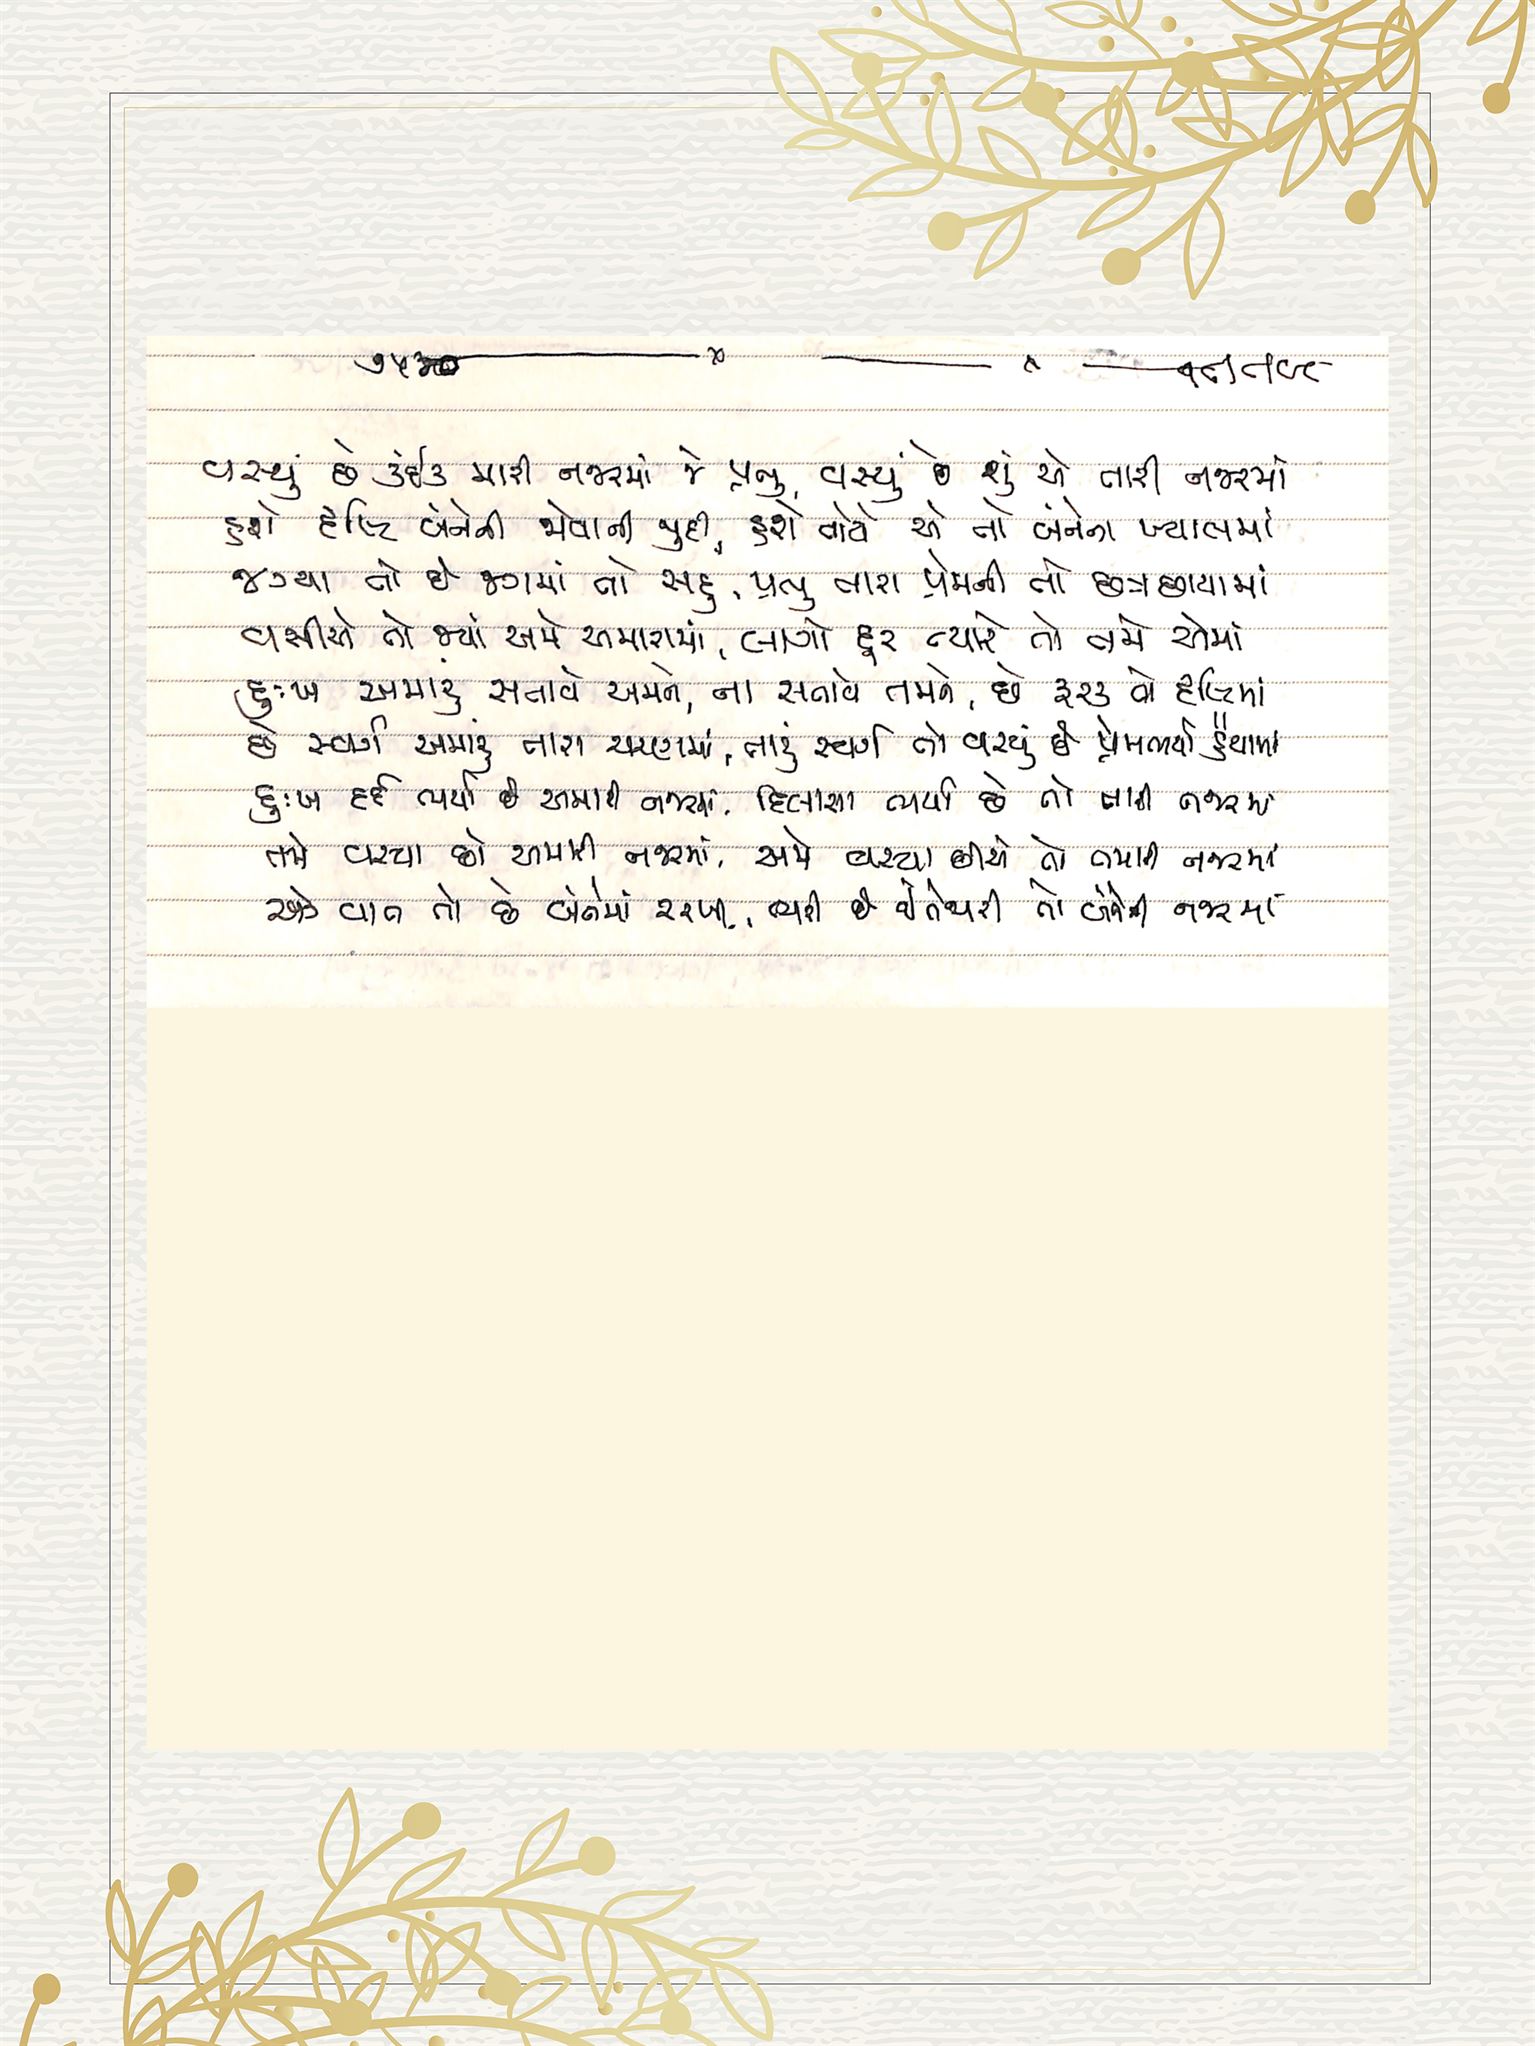 વસ્યું છે કંઈક મારી નજરમાં જે પ્રભુ, વસ્યું છે શું એ તારી નજરમાં
હશે દૃષ્ટિ બંનેની જોવાની જુદી, હશે તોયે એ તો બંનેના ખ્યાલમાં
જગ્યા તો છે જગમાં તો સહુ, પ્રભુ તારા પ્રેમની તો છત્રછાયામાં
વસીએ તો જ્યાં અમે અમારામાં, લાગો દૂર ત્યારે તો તમે એમાં
દુઃખ અમારું સતાવે અમને, ના સતાવે તમને, છે ફરક તો દૃષ્ટિમાં
છે સ્વર્ગ અમારું તારા ચરણમાં, તારું સ્વર્ગ તો વસ્યું છે પ્રેમભર્યા હૈયામાં
દુઃખ દર્દ ભર્યા છે અમારી નજરમાં, દિલાસા ભર્યા છે તો તારી નજરમાં
તમે વસ્યા છો અમારી નજરમાં, અમે વસ્યા છીએ તો તમારી નજરમાં
એક વાત તો છે બંનેમાં સરખી, ભરી છે તો બંનેની નજરમાં